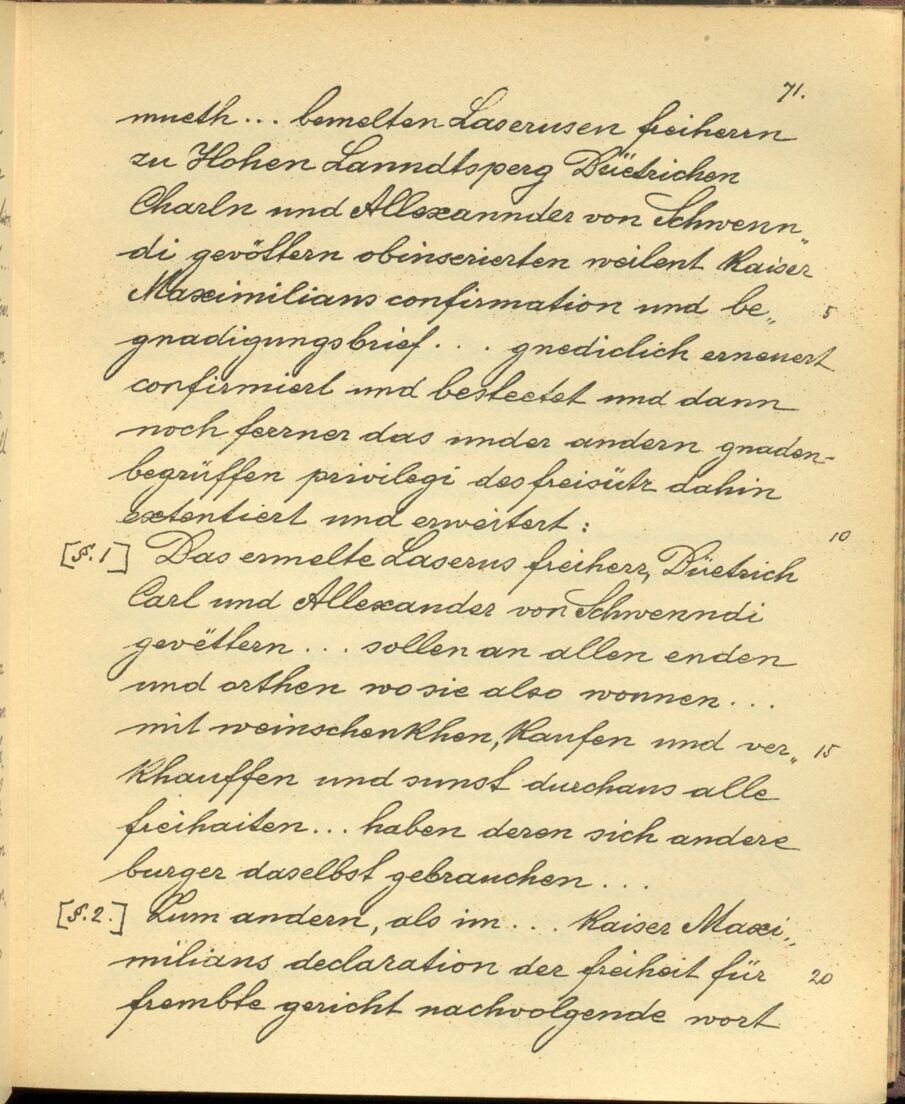 71.
mueth... bemelten Laserusen freiherrn
zu Hohen Lanndtsperg Düetrichen
Charln und Allexannder von Schwenn„
di gevöttern obinserierten weilent Kaiser
Maximilians confirmation und be„ 5
gnadigungsbrief... gnediclich erneuert
confirmiert und bestectet und dann
noch ferrner das under andern gnaden-
begrüffen privilegi des freisütz dahin
extentiert und erweitert: 10
[§.1] Das ermelte Laserus freiherr, Düetrich
Carl und Allexander von Schwenndi
gevëttern... sollen an allen enden
und orthen wo sie also wonnen...
mit weinschenKhen, Kaufen und ver„ 15
Khauffen und sunst durchaus alle
freihaiten... haben deren sich andere
burger daselbst gebrauchen...
[§.2.] Zum andern, als im... Kaiser Maxi„
milians declaration der freiheit für 20
frembte gericht nachvolgende wort